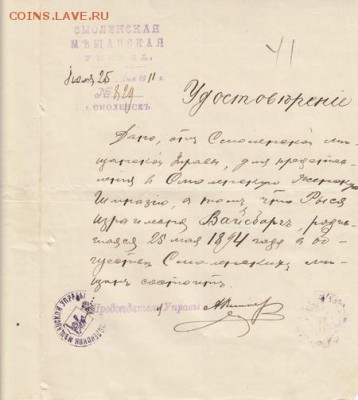 COINS.LAVE.RU
СМОЛЕНСКАЯ
МѢЩАНСКАЯ
УПРАВА
Іюля 25 дня 1911 г.
№ 829
г. СМОЛЕНСКЪ
41
Удостовѣреніе
Дано, отъ Смоленской мѣ-
щанской Управы, для представ-
ленія въ Смоленскую Женскую
Гимназію, въ томъ, что Рыся
Израилевна Вайсбергъ, родив-
шаяся 28 мая 1894 года, въ об-
ществѣ Смоленскихъ мѣ-
щанъ состоитъ.
Предсѣдатель Управы
СМОЛЕНСКОЙ МѢЩАНСКОЙ УПРАВЫ